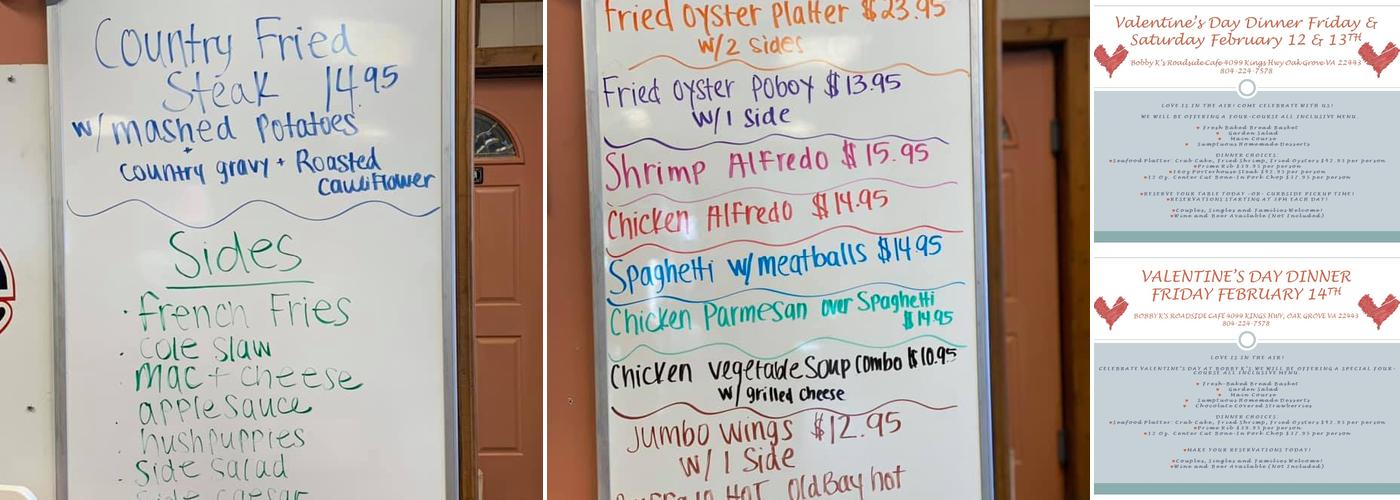 Country Fried
Steak 14.95
w/ mashed Potatoes
+
country gravy + Roasted
cauliflower
Sides
· French Fries
· Cole Slaw
· Mac + cheese
· apple sauce
· hushpuppies
· Side Salad
Side Caesar
Fried Oyster Platter $23.95
w/2 sides
Fried Oyster Poboy $13.95
w/1 side
Shrimp Alfredo $15.95
Chicken Alfredo $14.95
Spaghetti w/meatballs $14.95
Chicken Parmesan over Spaghetti
$14.95
Chicken vegetable Soup combo $10.95
w/ grilled cheese
Jumbo wings $12.95
w/ 1 Side
HOT Old Bay hot
Valentine's Day Dinner Friday &
Saturday February 12 & 13TH
Bobby K's Roadside Cafe 4099 Kings Hwy Oak Grove VA 22443
804-224-7578
LOVE IS IN THE AIR! COME CELEBRATE WITH US!
WE WILL BE OFFERING A FOUR-COURSE ALL INCLUSIVE MENU.
Fresh Baked Bread Basket
Garden Salad
Main Course
Sumptuous Homemade Desserts
DINNER CHOICES:
Seafood Platter: Crab Cake, Fried Shrimp, Fried Oysters $42.95 per person
Prime Rib $39.95 per person
16oz Porterhouse Steak $42.95 per person
12 Oz. Center Cut Bone-In Pork Chop $37.95 per person
RESERVE YOUR TABLE TODAY -OR- CURBSIDE PICKUP TIME!
RESERVATIONS STARTING AT 3PM EACH DAY!
Couples, Singles and Families Welcome!
Wine and Beer Available (Not Included)
VALENTINE'S DAY DINNER
FRIDAY FEBRUARY 14TH
BOBBY K'S ROADSIDE CAFE 4099 KINGS HWY, OAK GROVE VA 22443
804-224-7578
LOVE IS IN THE AIR!
CELEBRATE VALENTINE'S DAY AT BOBBY K'S. WE WILL BE OFFERING A SPECIAL FOUR-
COURSE ALL INCLUSIVE MENU.
Fresh-Baked Bread Basket
Garden Salad
Main Course
Sumptuous Homemade Desserts
Chocolate Covered Strawberries
DINNER CHOICES:
Seafood Platter: Crab Cake, Fried Shrimp, Fried Oysters $42.95 per person
Prime Rib $39.95 per person
12 Oz. Center Cut Bone-In Pork Chop $37.95 per person
MAKE YOUR RESERVATIONS TODAY!
Couples, Singles and Families Welcome!
Wine and Beer Available (Not Included)